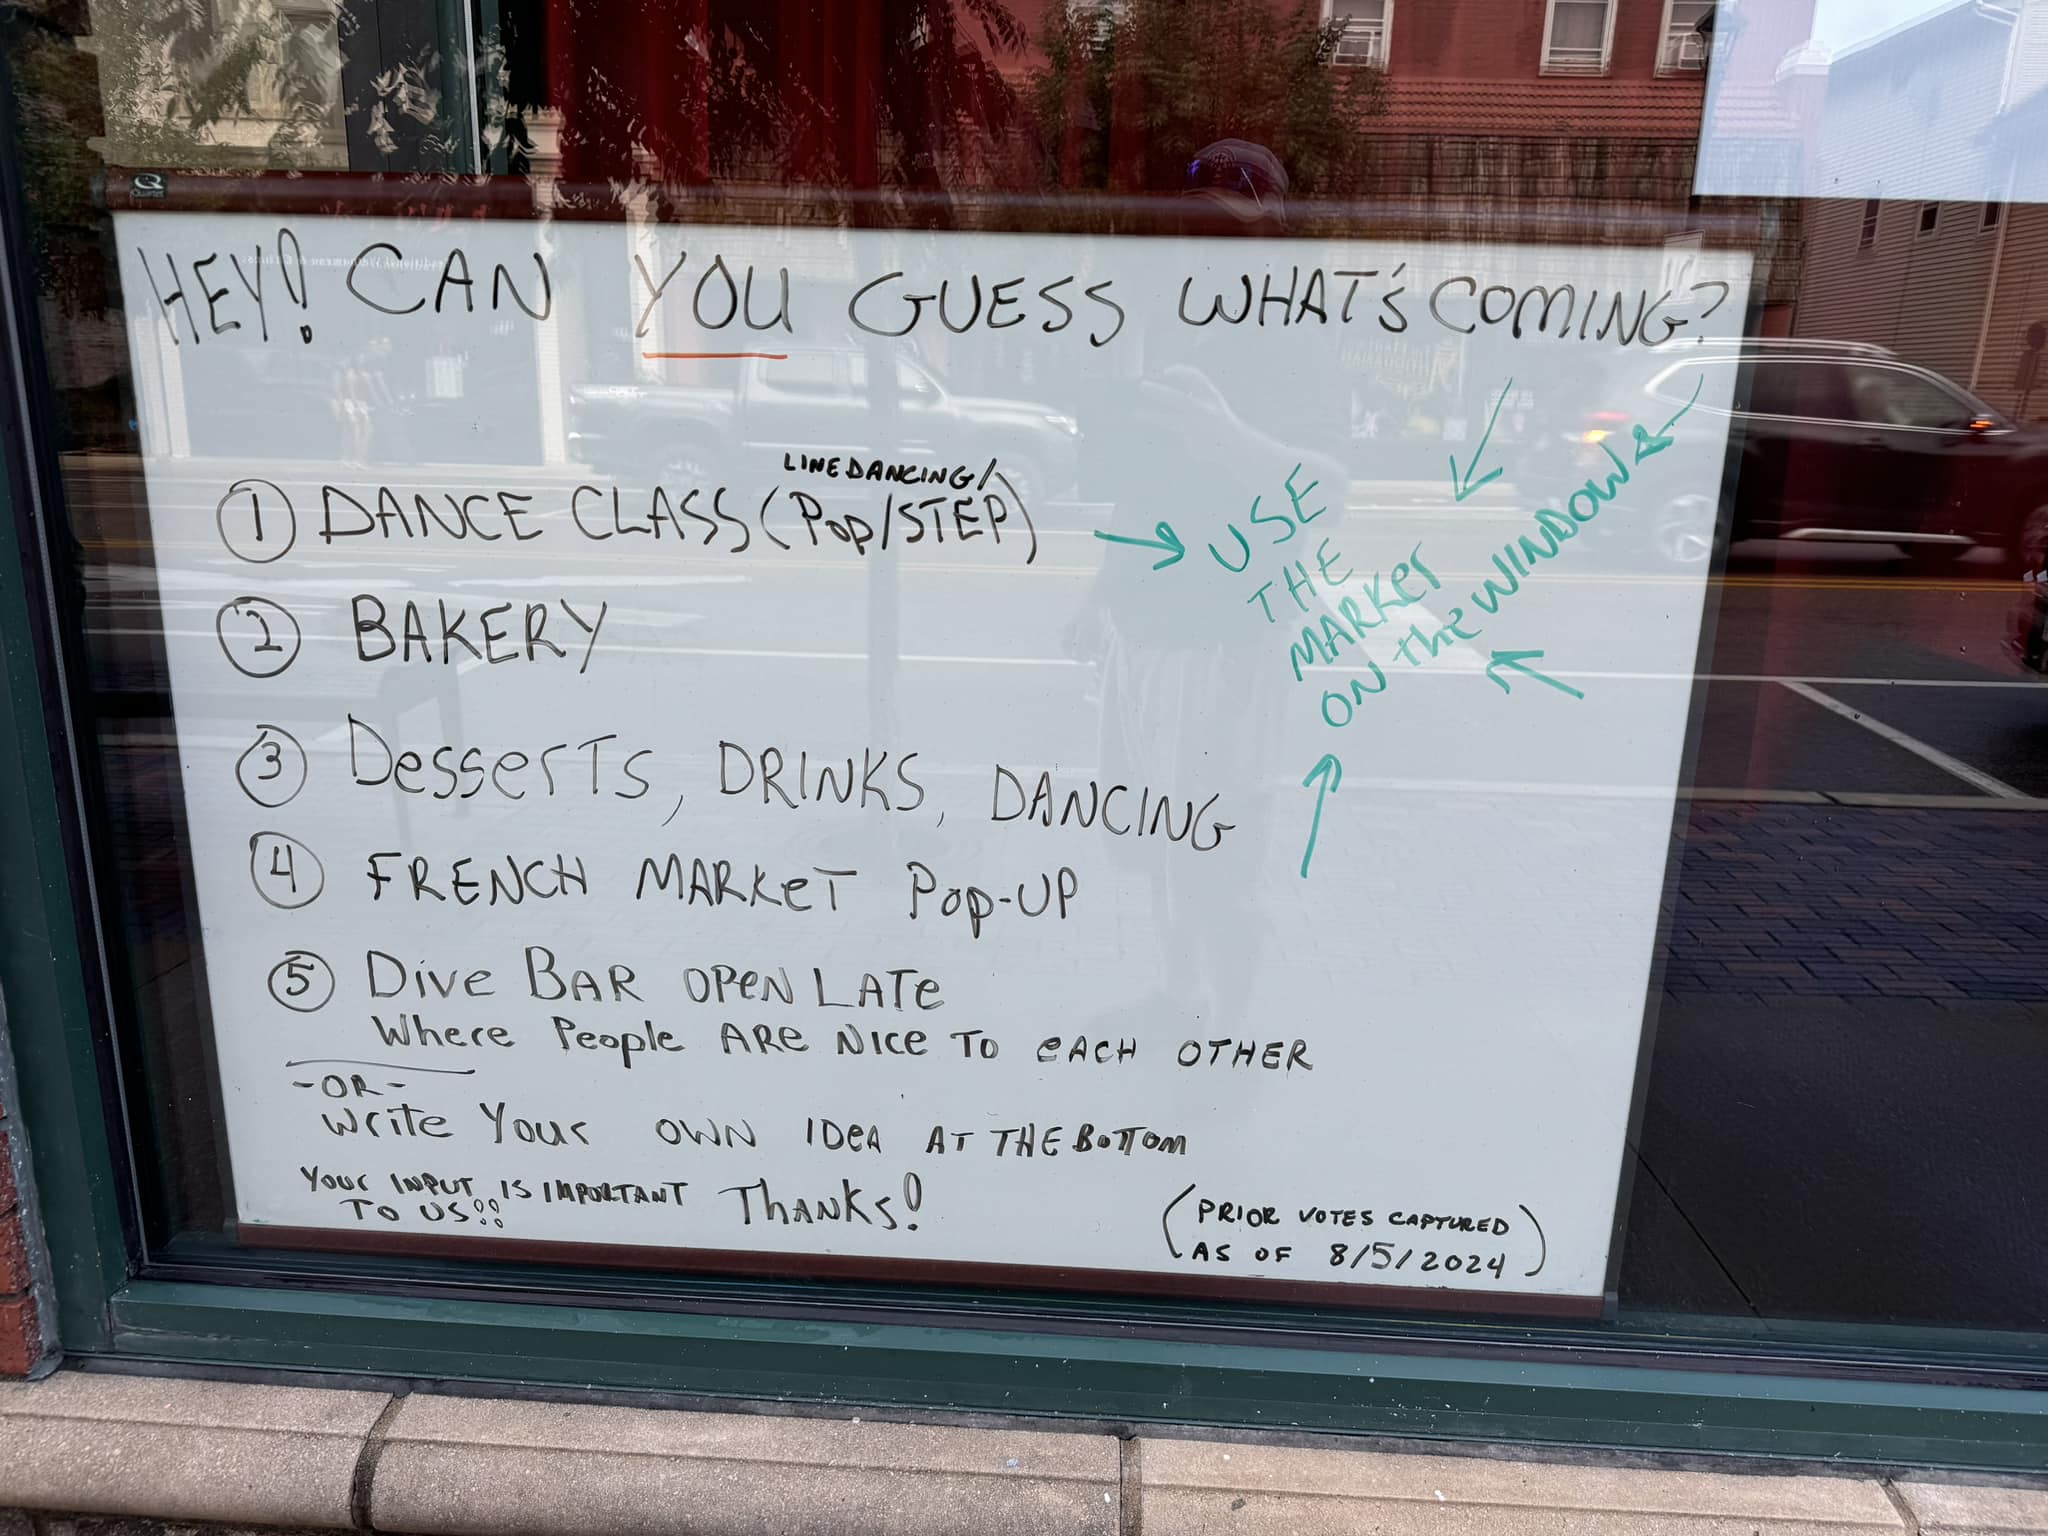 HEY! CAN YOU GUESS WHAT'S COMING?
LINE DANCING/
① DANCE CLASS (POP/STEP)
② BAKERY
③ DesserTs, DRINKS, DANCING
④ FRENCH MARKeT Pop-UP
⑤ Dive BAR OPeN LATe
Where People ARe Nice To eACH OTHER
-OR-
Write Your OWN IDeA AT THE BoTTom
Your INPUT IS IMPORTANT
TO US!!
THANKS!
(PRIOR VOTES CAPTURED
AS OF 8/5/2024)
USE
THE
MARKer
ON the WINDOW